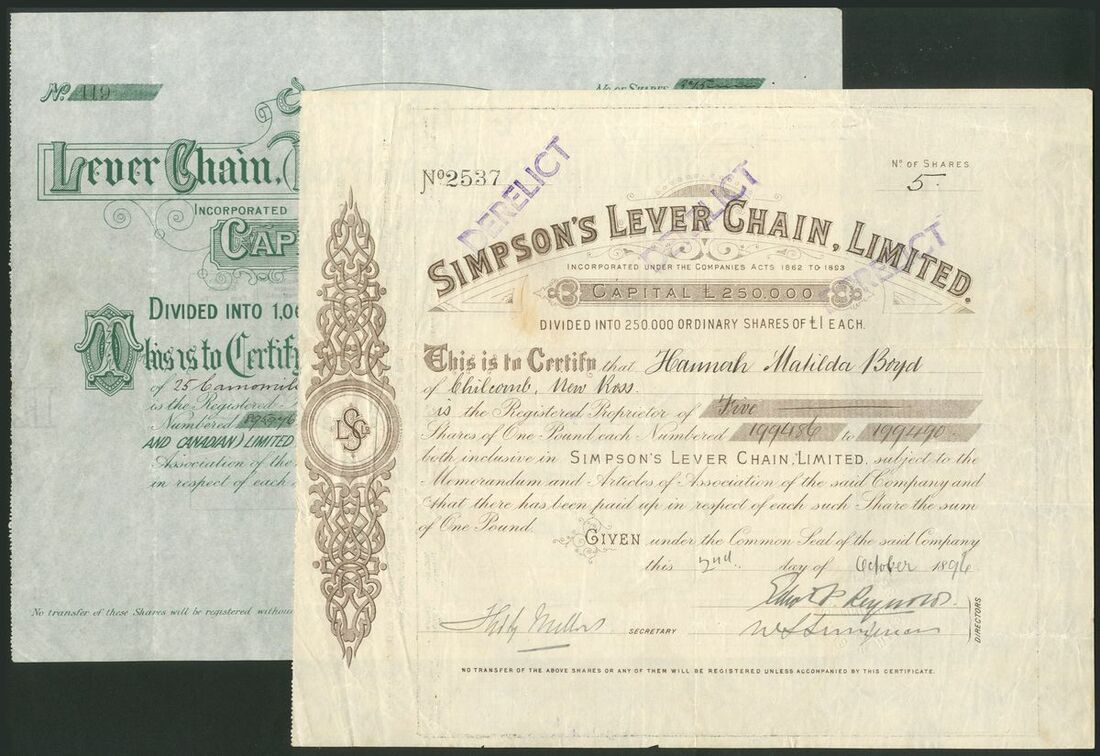 No. 119
No OF SHARES
Lever Chain,
INCORPORATED
CAP
DIVIDED INTO 1,00
This is to Certify
of 25 Camomile
is the Registered
Numbered
AND CANADIAN) LIMITED
Association of the
in respect of each
No transfer of these Shares will be registered withou
No 2537
No OF SHARES
5
DERELICT
DERELICT
DERELICT
SIMPSON'S LEVER CHAIN, LIMITED.
INCORPORATED UNDER THE COMPANIES ACTS 1862 TO 1893
CAPITAL £250.000
DIVIDED INTO 250.000 ORDINARY SHARES OF £1 EACH.
This is to Certify that Hannah Matilda Boyd
of Chilcomb, New Ross.
is the Registered Proprietor of Five
Shares of One Pound each Numbered 199486 to 199490
both inclusive in SIMPSON'S LEVER CHAIN, LIMITED, subject to the
Memorandum and Articles of Association of the said Company and
that there has been paid up in respect of each such Share the sum
of One Pound.
GIVEN under the Common Seal of the said Company
this 2nd day of October 1896
Reynolds
SECRETARY
DIRECTORS
NO TRANSFER OF THE ABOVE SHARES OR ANY OF THEM WILL BE REGISTERED UNLESS ACCOMPANIED BY THIS CERTIFICATE.